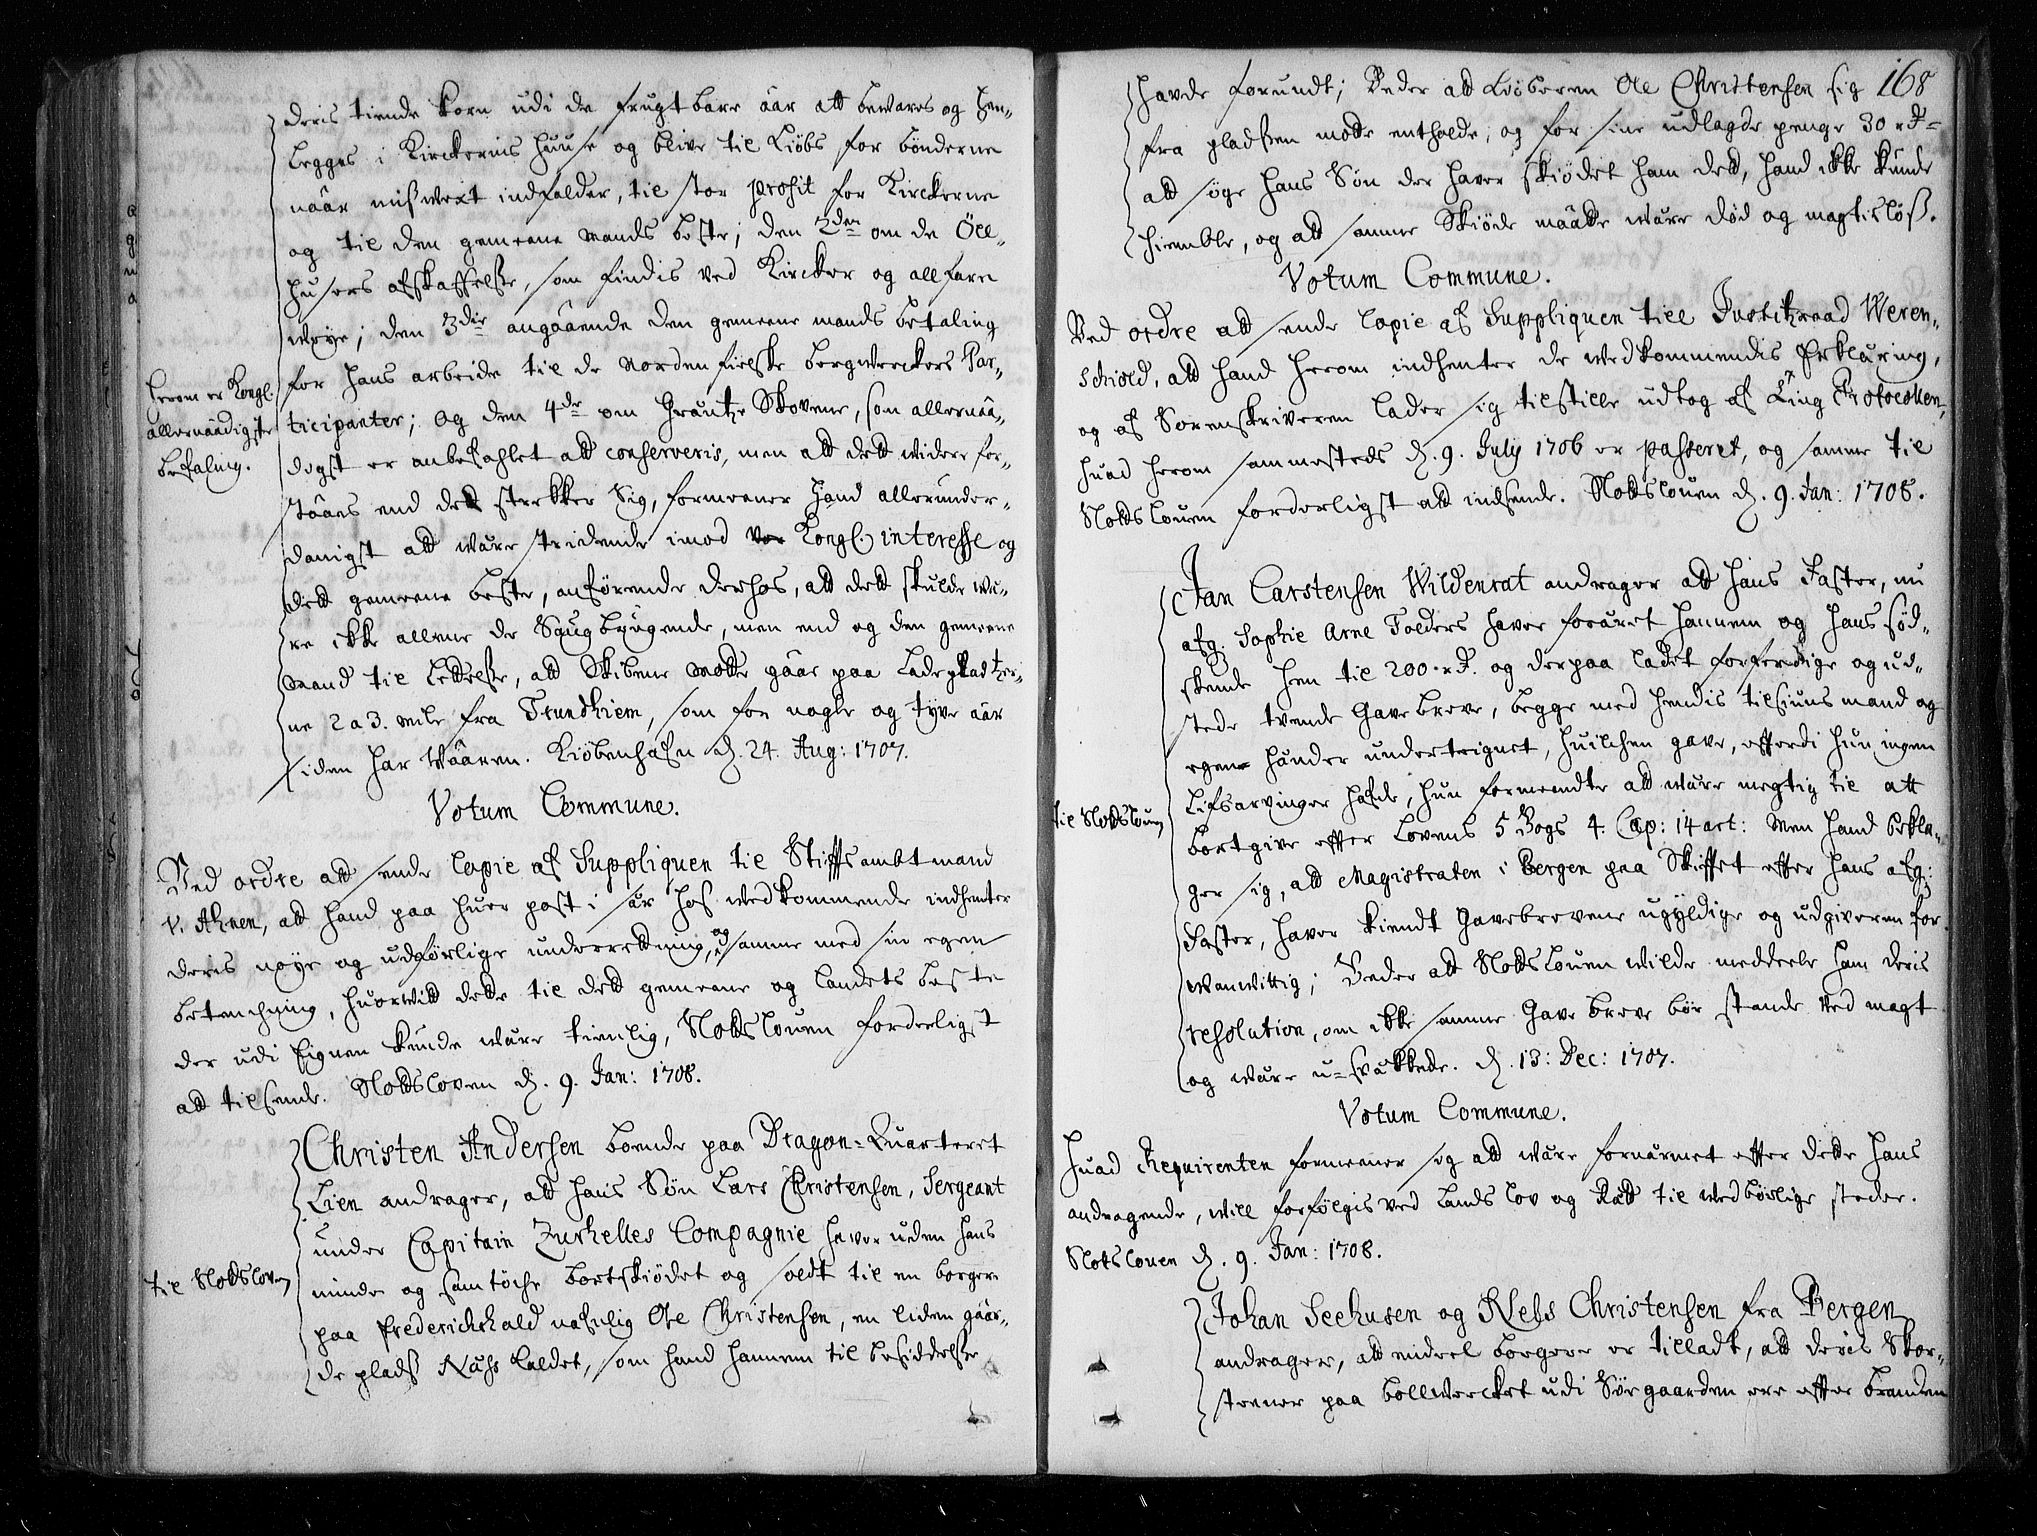 deris tiende korn udi de frugtbare äar att bewares og hen-
legges i Kirckernis huuse og blive til kiöbs for bönderne
nåar misswext indfalder, til stor profit for Kirckerne
og til den gemeene mands beste; den 2den om de Öll-
husers afskaffelse, som findis ved Kircker og allfare
weÿe; den 3die angåaende den gemeene mands betaling
for hans arbeide til de Nordenfielske bergwerckers Par-
ticipanter; og den 4de om Gräntze Skovene, som allernåa-
digst er anbefahlet att conserveris, men att dett widere for-
ståaes end dett strekker Sig, formeener hand allerunder-
danigst att være stridende imod Kongl. interesse og
dett gemeene beste, anförende derhos, att dett skulde væ-
re ikke alleene de Saugbÿugende, men end og den gemeene
mand til lettelse, att Skibene motte gåae paa Ladepladtzer-
ne 2 a 3. mile fra Trundhiem, som for nogle og tÿve åar
siden har wåaren. Kiöbenhafn d. 24. Aug: 1707.
Herom er Kongl.
allernåadigste
befaling.
Votum Commune.
Ved ordre att sende Copie af Suppliquen til Stiftsambtmand
v. Ahnen, att hand paa huer post i sær hos wedkommende indhenter
deris nöÿe og udförlige underretning, og samme med sin egen
betenchning, huorwitt dette til dett gemeene og landets beste
der udi Eignen kunde være tienlig, Slottslouen forderligst
att tilsende. Slottsloven d. 9. Jan: 1708.
Christen Andersen boende paa Dragon-Quarteret
Lien andrager, att hans Sön Lars Christensen, Sergeant
under Capitain Zurhelles Compagnie haver uden hans
minde og samtöche bortskiödet og soldt til en borgere
til Slottsloven
paa Frederichshald nafnlig Ole Christensen, en liden gåar-
de plads kaldet, som hand hannem til besiddelse
168
hafde forundt; Beder att Kiöberen Ole Christensen sig
fra pladsen motte entholde, og for sine udlagde penge 30 rd
att söge hans Sön der haver skiödet ham dett, hand ikke kunde
hiemble, og att samme Skiöde måatte være död og magteslöss.
Votum Commune.
Ved ordre att sende Copie af Suppliquen till Justitzraad Weren-
schiold, att hand herom indhenter de wedkommendis Erklæring,
og af Sorenskriveren lader sig tilstille udtog af Ting Protocollen,
huad herom sammesteds d. 9. Julÿ 1706 er passeret, og samme til
Slottslouen forderligst att indsende. Slottslouen d. 9. Jan: 1708.
Jan Carstensen Wildenrat andrager att hans Faster, nu
afg. Sophie Arne Folders haver foræret hannem og hans söd-
skende hen til 200 rd. og derpaa ladet forferdige og ud-
stede tvende Gavebreve, begge med hendis tilsiuns mand og
egene hænder undertegnet, huilchen gave, efterdi hun ingen
Lifsarvinger hafde, hun formeendte att være megtig til att
til Slottslouen
bortgive efter Lovens 5 Bogs 4. Cap: 14 art: Men hand bekla-
ger sig, att Magistraten i Bergen paa Skiftet efter hans afg:
Faster, haver kiendt Gavebrevene ugÿldige og udgiveren for
wanwittig; Beder att Slottslouen wilde meddeele ham deris
resolution, om ikke samme Gavebreve bör stande ved magt
og være u-svækkede. d. 13: Dec: 1707.
Votum Commune.
Huad Requirenten formeener sig att være fornærmet efter dette hans
andragende, will forfölgis ved Lands lov og Rett til wedbörlige steder.
Slottslouen d. 9. Jan: 1708.
Johan Seehusen og Nels Christensen fra Bergen
andrager, att endeel borgere er tilladt, att deris Skor-
steener paa bollwercket udi Sörgaarden ere efter branden